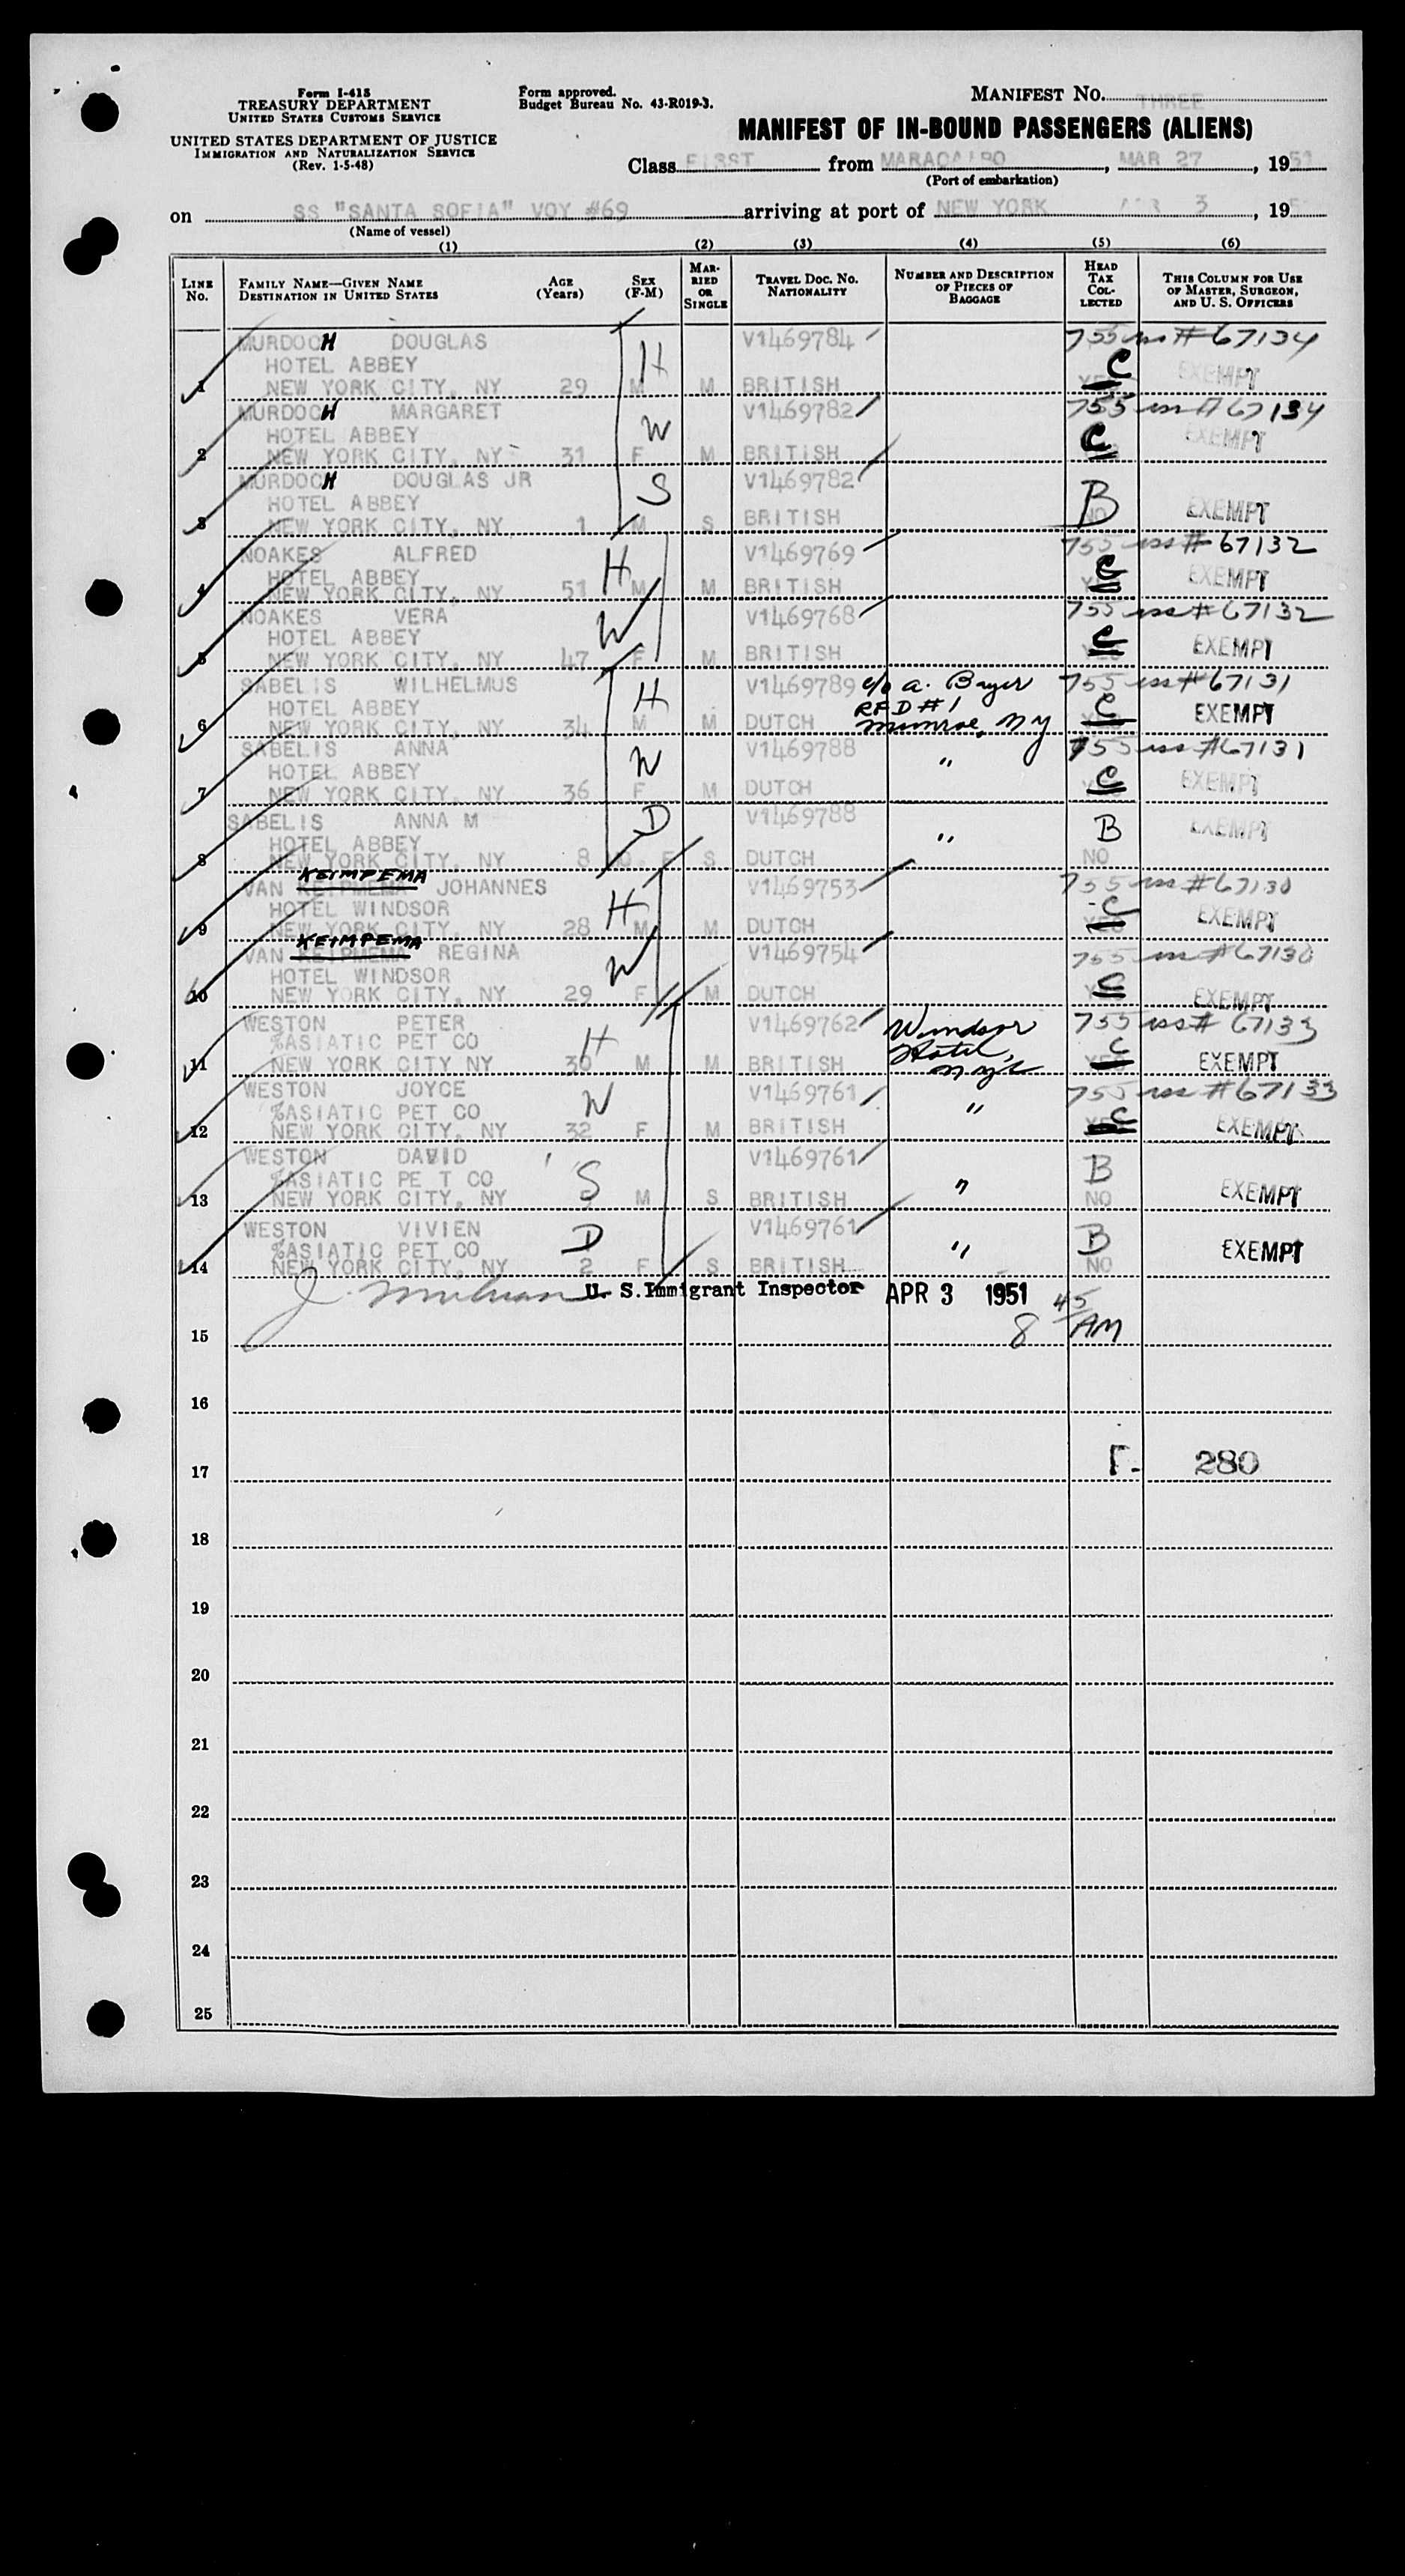 Form I-415
TREASURY DEPARTMENT
UNITED STATES CUSTOMS SERVICE
UNITED STATES DEPARTMENT OF JUSTICE
IMMIGRATION AND NATURALIZATION SERVICE
(Rev. 1-5-48)
Form approved.
Budget Bureau No. 43-R019-3.
MANIFEST NO. THREE
MANIFEST OF IN-BOUND PASSENGERS (ALIENS)
Class FIRST from MARACAIBO, MAR 27, 1951
(Port of embarkation)
on SS "SANTA SOFIA" VOY #69 arriving at port of NEW YORK APR 3, 195
(Name of vessel)
(1) (2) (3) (4) (5) (6)
LINE No. FAMILY NAME—GIVEN NAME DESTINATION IN UNITED STATES AGE (Years) SEX (F-M) MARRIED OR SINGLE TRAVEL DOC. NO. NATIONALITY NUMBER AND DESCRIPTION OF PIECES OF BAGGAGE HEAD TAX COLLECTED THIS COLUMN FOR USE OF MASTER, SURGEON, AND U. S. OFFICERS
MURDOCH DOUGLAS H V1469784 755 iss # 67134
HOTEL ABBEY C EXEMPT
1 NEW YORK CITY, NY 29 M M BRITISH YES
MURDOCH MARGARET V1469782 755 iss # 67134
HOTEL ABBEY W C EXEMPT
2 NEW YORK CITY, NY 31 F M BRITISH
MURDOCH DOUGLAS JR S V1469782
HOTEL ABBEY B EXEMPT
3 NEW YORK CITY, NY 1 M S BRITISH NO
NOAKES ALFRED V1469769 755 iss # 67132
HOTEL ABBEY H C EXEMPT
4 NEW YORK CITY, NY 51 M M BRITISH
NOAKES VERA V1469768 755 iss # 67132
HOTEL ABBEY W C EXEMPT
5 NEW YORK CITY, NY 47 F M BRITISH
SABELIS WILHELMUS H V1469789 c/o A. Bayer 755 iss # 67131
HOTEL ABBEY RFD #1 C EXEMPT
6 NEW YORK CITY, NY 34 M M DUTCH Munroe, NY
SABELIS ANNA W V1469788 755 iss # 67131
HOTEL ABBEY " C EXEMPT
7 NEW YORK CITY, NY 36 F M DUTCH
SABELIS ANNA M D V1469788 B EXEMPT
HOTEL ABBEY "
8 NEW YORK CITY, NY 8 F S DUTCH NO
KEIMPEMA
VAN KEIPMEMA JOHANNES V1469753 755 iss # 67130
HOTEL WINDSOR H C EXEMPT
9 NEW YORK CITY, NY 28 M M DUTCH YES
KEIMPEMA
VAN KEIPMEMA REGINA V1469754 755 iss # 67130
HOTEL WINDSOR W C
10 NEW YORK CITY, NY 29 F M DUTCH EXEMPT
WESTON PETER V1469762 Windsor 755 iss # 67133
%ASIATIC PET CO H Hotel, C
11 NEW YORK CITY NY 30 M M BRITISH NYC EXEMPT
WESTON JOYCE W V1469761 755 iss # 67133
%ASIATIC PET CO " C EXEMPT
12 NEW YORK CITY, NY 32 F M BRITISH
WESTON DAVID V1469761 B
%ASIATIC PE T CO S " EXEMPT
13 NEW YORK CITY, NY M S BRITISH NO
WESTON VIVIEN V1469761 B
%ASIATIC PET CO D " EXEMPT
14 NEW YORK CITY, NY 2 F S BRITISH NO
U. S. Immigrant Inspector APR 3 1951
15 8 45 AM
16
17 280
18
19
20
21
22
23
24
25